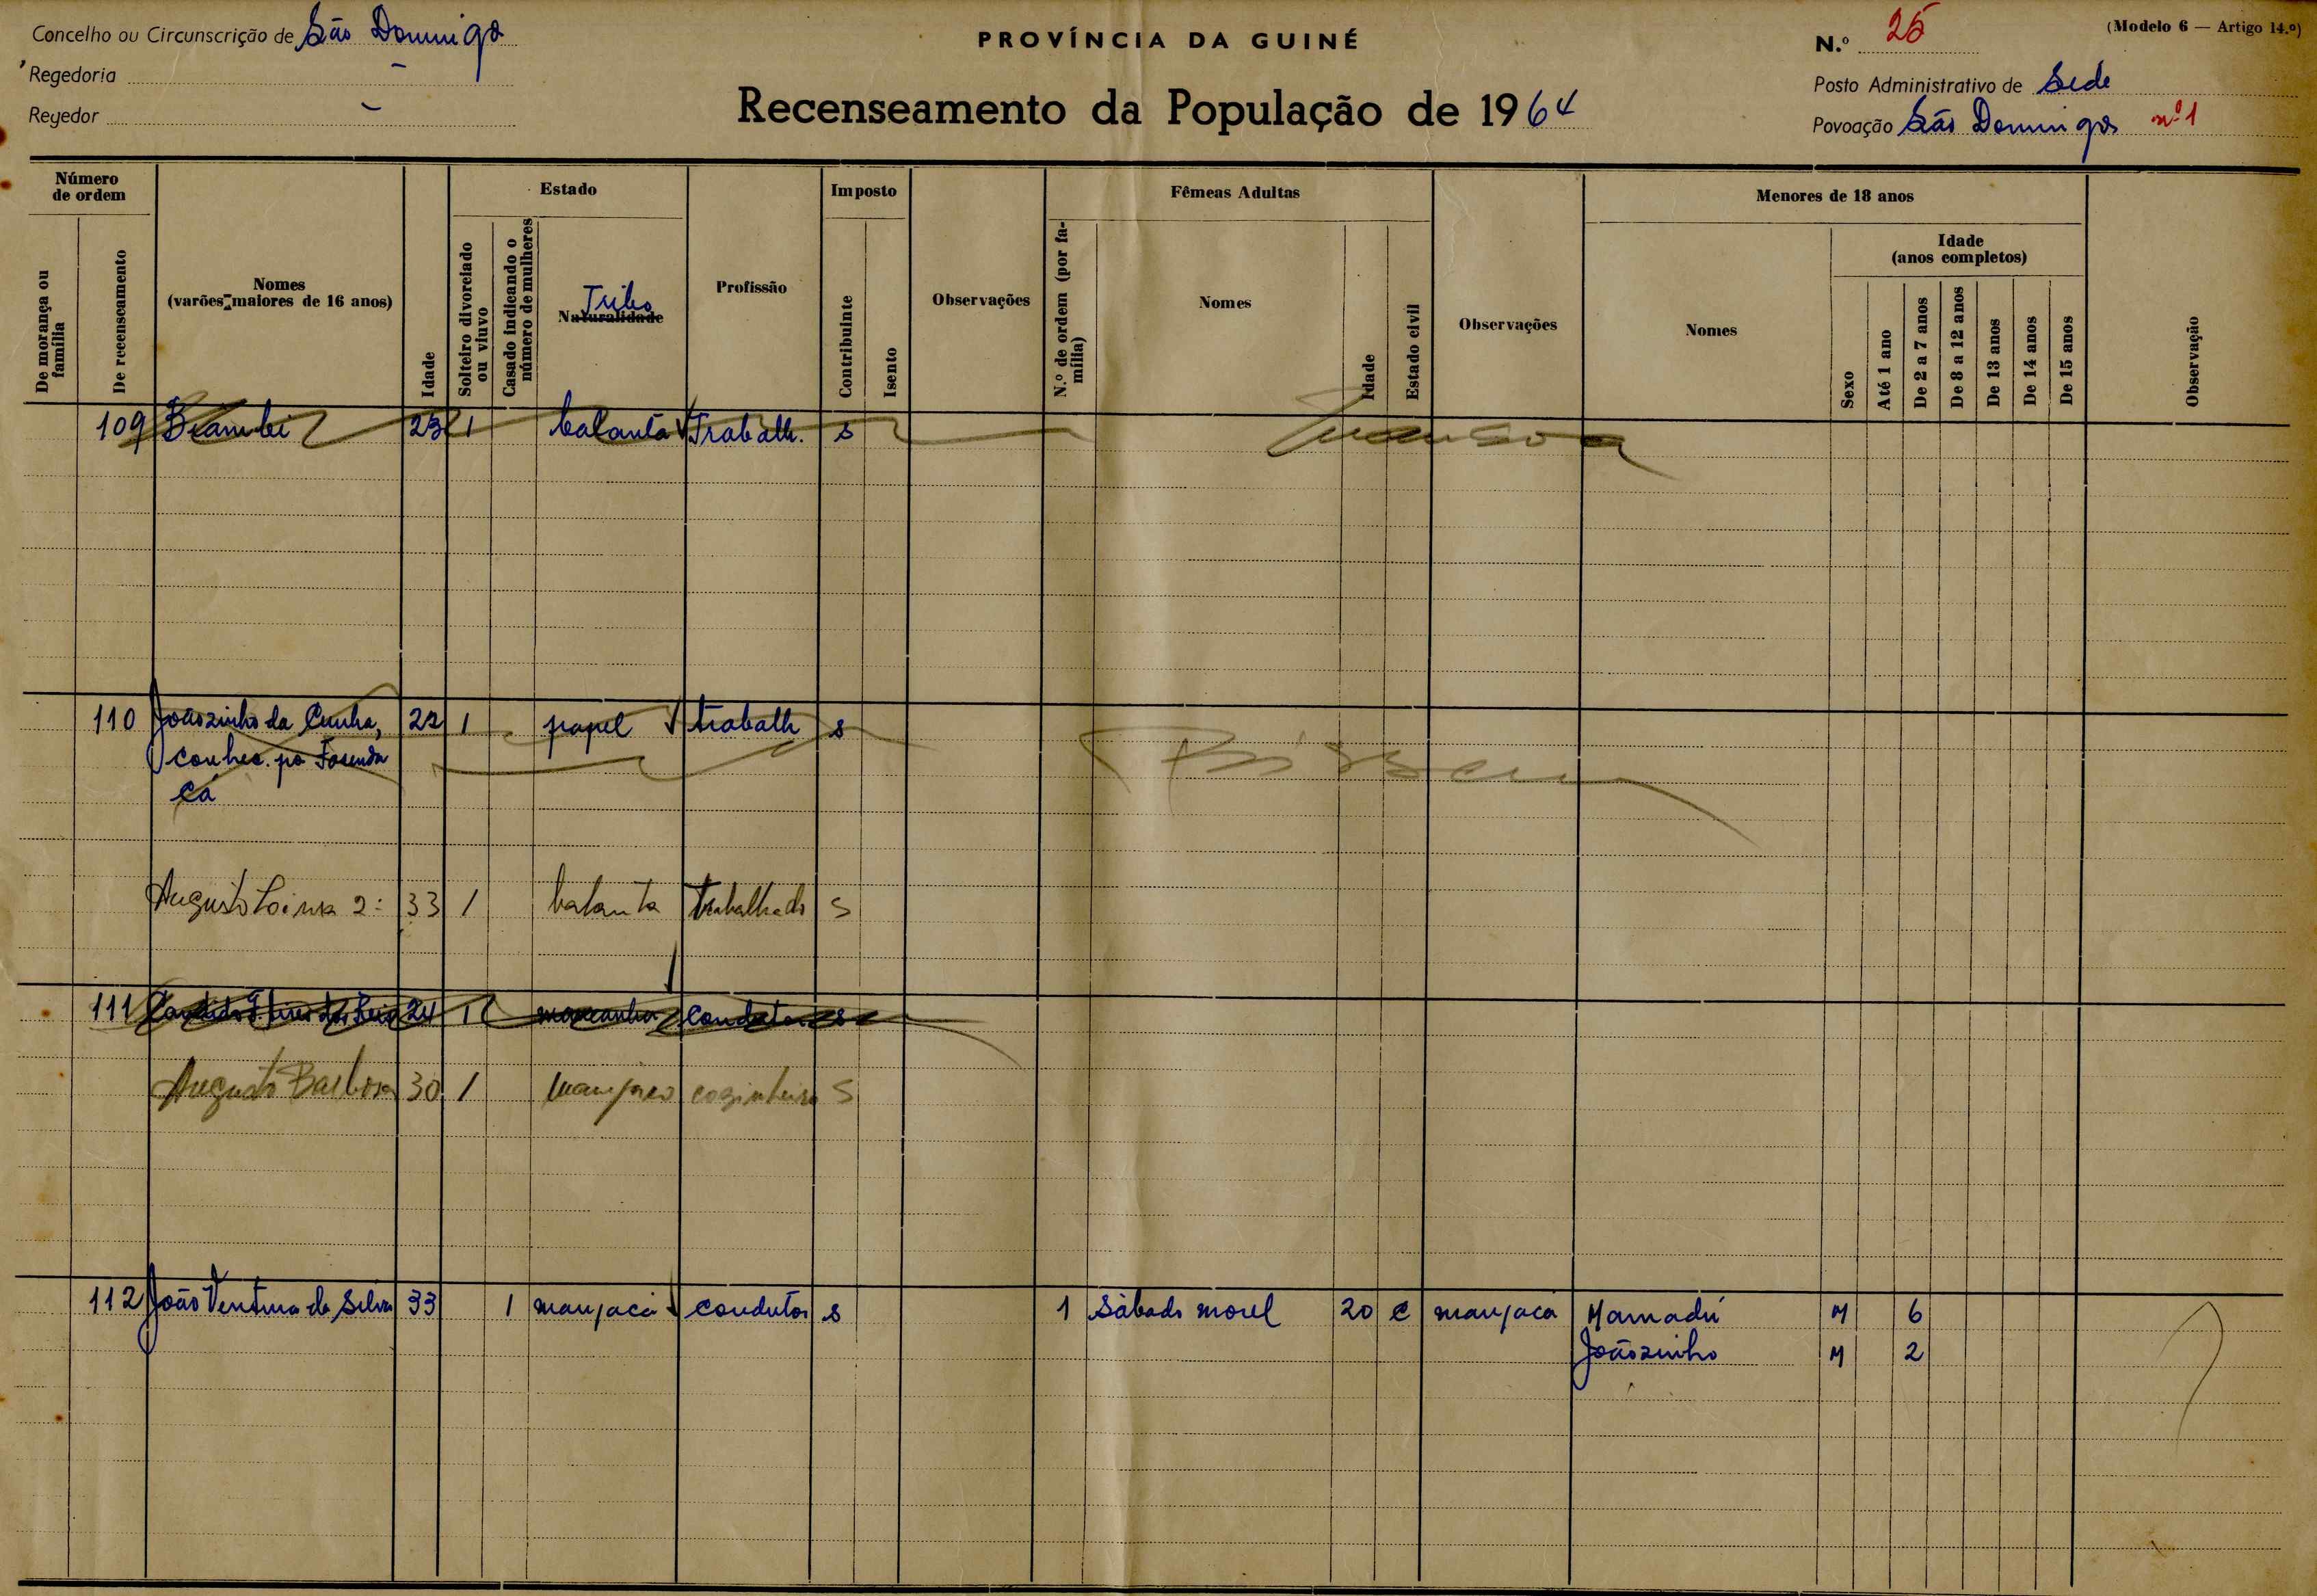 Concelho ou Circunscrição de São Domingos
Regedoria -
Regedor -
PROVÍNCIA DA GUINÉ
Recenseamento da População de 1964
(Modelo 6 — Artigo 14.º)
N.º 25
Posto Administrativo de Sede
Povoação São Domingos nº 1
Número de ordem
De morança ou família
De recenseamento
Nomes
(varões maiores de 16 anos)
Idade
Estado
Solteiro divorciado ou viuvo
Casado indicando o número de mulheres
Tribo
Naturalidade
Profissão
Imposto
Contribuinte
Isento
Observações
Fêmeas Adultas
N.º de ordem (por família)
Nomes
Idade
Estado civil
Observações
Menores de 18 anos
Nomes
Idade
(anos completos)
Sexo
Até 1 ano
De 2 a 7 anos
De 8 a 12 anos
De 13 anos
De 14 anos
De 15 anos
Observação
109 Biambi 23 1 balanta Trabalh. s
110 Joãozinho da Cunha, 22 1 papel trabalh s
conhec. por Fasenda
Cá
Bissau
Augusto 2º 33 1 balanta trabalhado s
111 24 1 mancanha condutor s
Augusto Barbosa 30 1 manjaco cozinheiro s
112 João Ventura da Silva 33 1 manjaca condutor s 1 Sábado morel 20 C manjaca Mamadú M 6
Joãozinho M 2